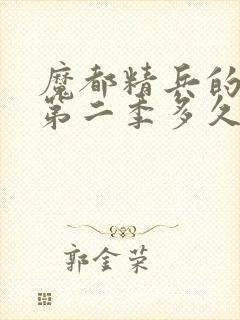 魔都精兵的
第二季多久
郭金荣